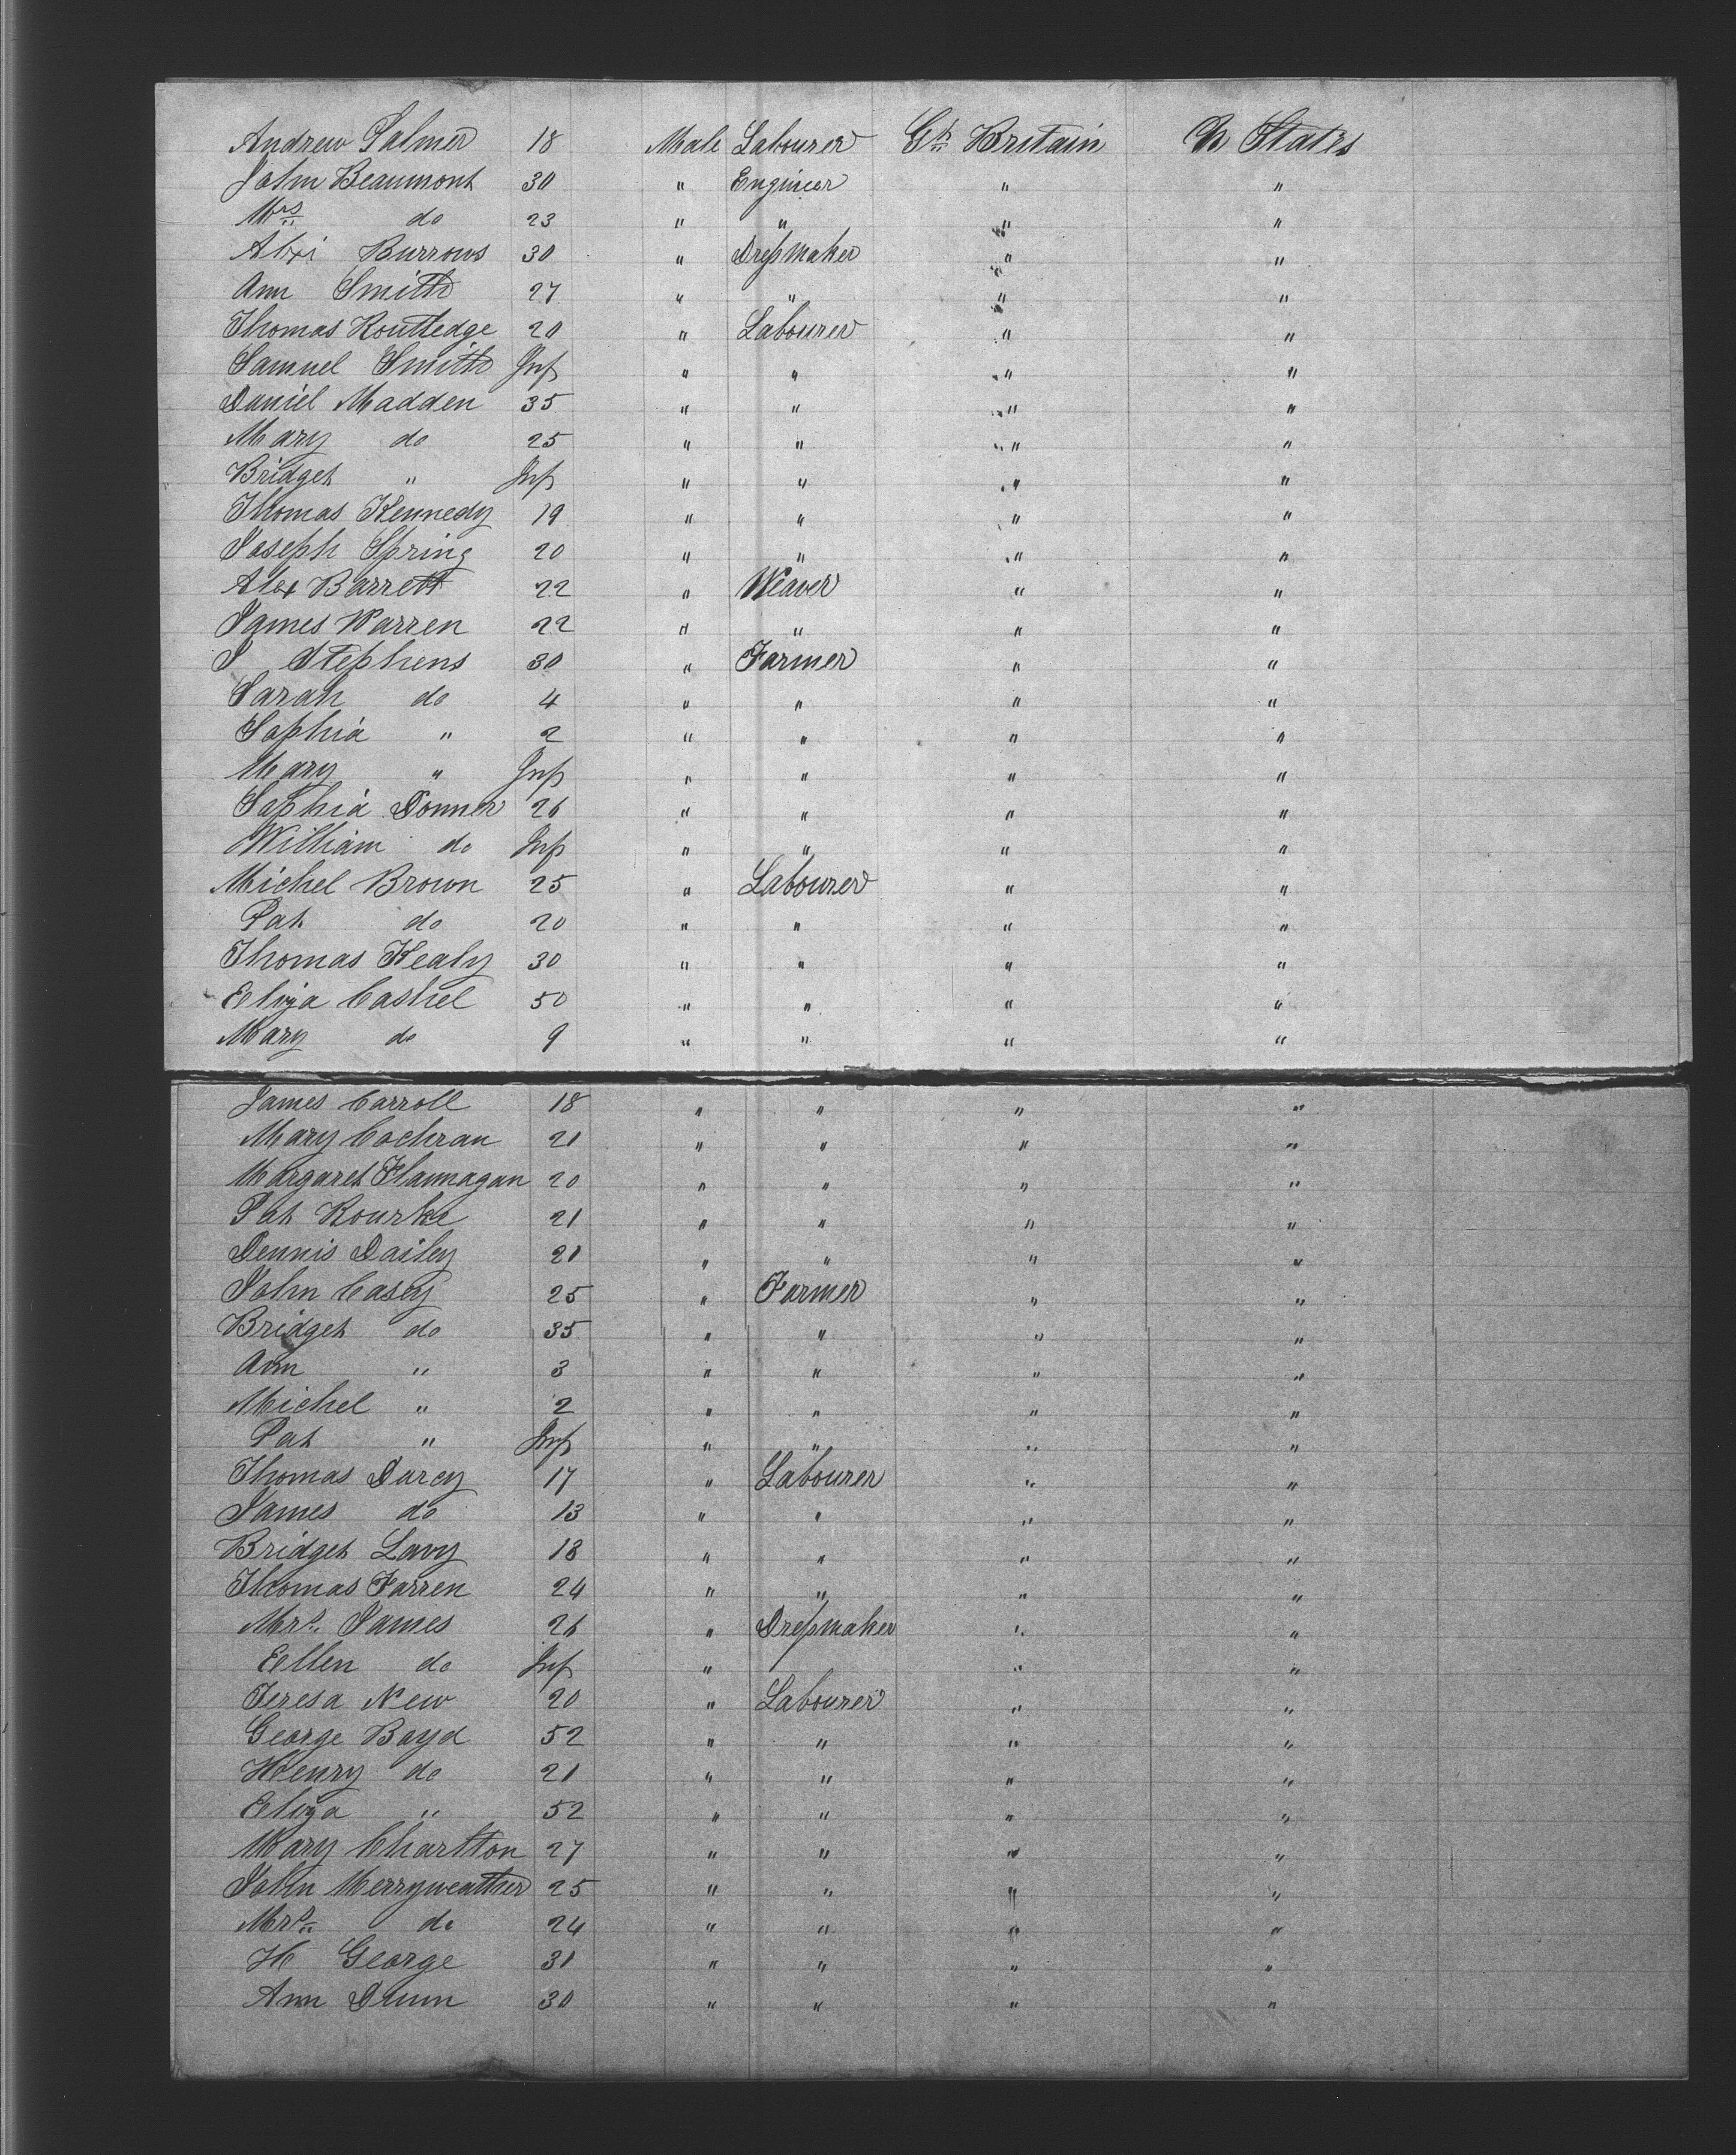 Andrew Palmer 18 Male Labourer Gt. Britain U States
John Beaumont 30 " Engineer " "
Mrs do 23 " " " "
Burrows 30 " Dressmaker " "
Ann Smith 27 " " " "
Thomas Routledge 20 " Labourer " "
Samuel Smith Inf " " " "
Daniel Madden 35 " " " "
Mary do 25 " " " "
Bridget " Inf " " " "
Thomas Kennedy 19 " " " "
Joseph Spring 20 " " " "
Alex Barrett 22 " Weaver " "
James Warren 22 " " " "
J Stephens 30 " Farmer " "
Sarah do 4 " " " "
Sophia " 2 " " " "
Mary " Inf " " " "
Sophia Donner 26 " " " "
William do Inf " " " "
Michel Brown 25 " Labourer " "
Pat do 20 " " " "
Thomas Kealy 30 " " " "
Eliza Cashel 50 " " " "
Mary do 9 " " " "
James Carroll 18 " " " "
Mary Cochran 21 " " " "
Margaret Flannagan 20 " " " "
Pat Rourke 21 " " " "
Dennis Dailey 21 " " " "
John Casey 25 " Farmer " "
Bridget do 35 " " " "
Ann " 3 " " " "
Michel " 2 " " " "
Pat " Inf " " " "
Thomas Darcy 17 " Labourer " "
James do 13 " " " "
Bridget Lavy 18 " " " "
Thomas Farren 24 " " " "
Mrs. James 26 " Dressmaker " "
Ellen do Inf " " "
Teresa New 20 " Labourer " "
George Boyd 52 " " " "
Henry do 21 " " " "
Eliza " 52 " " " "
Mary Charlton 27 " " " "
John Merryweather 25 " " " "
Mrs. do 24 " " " "
H George 31 " " " "
Ann Drum 30 " " " "